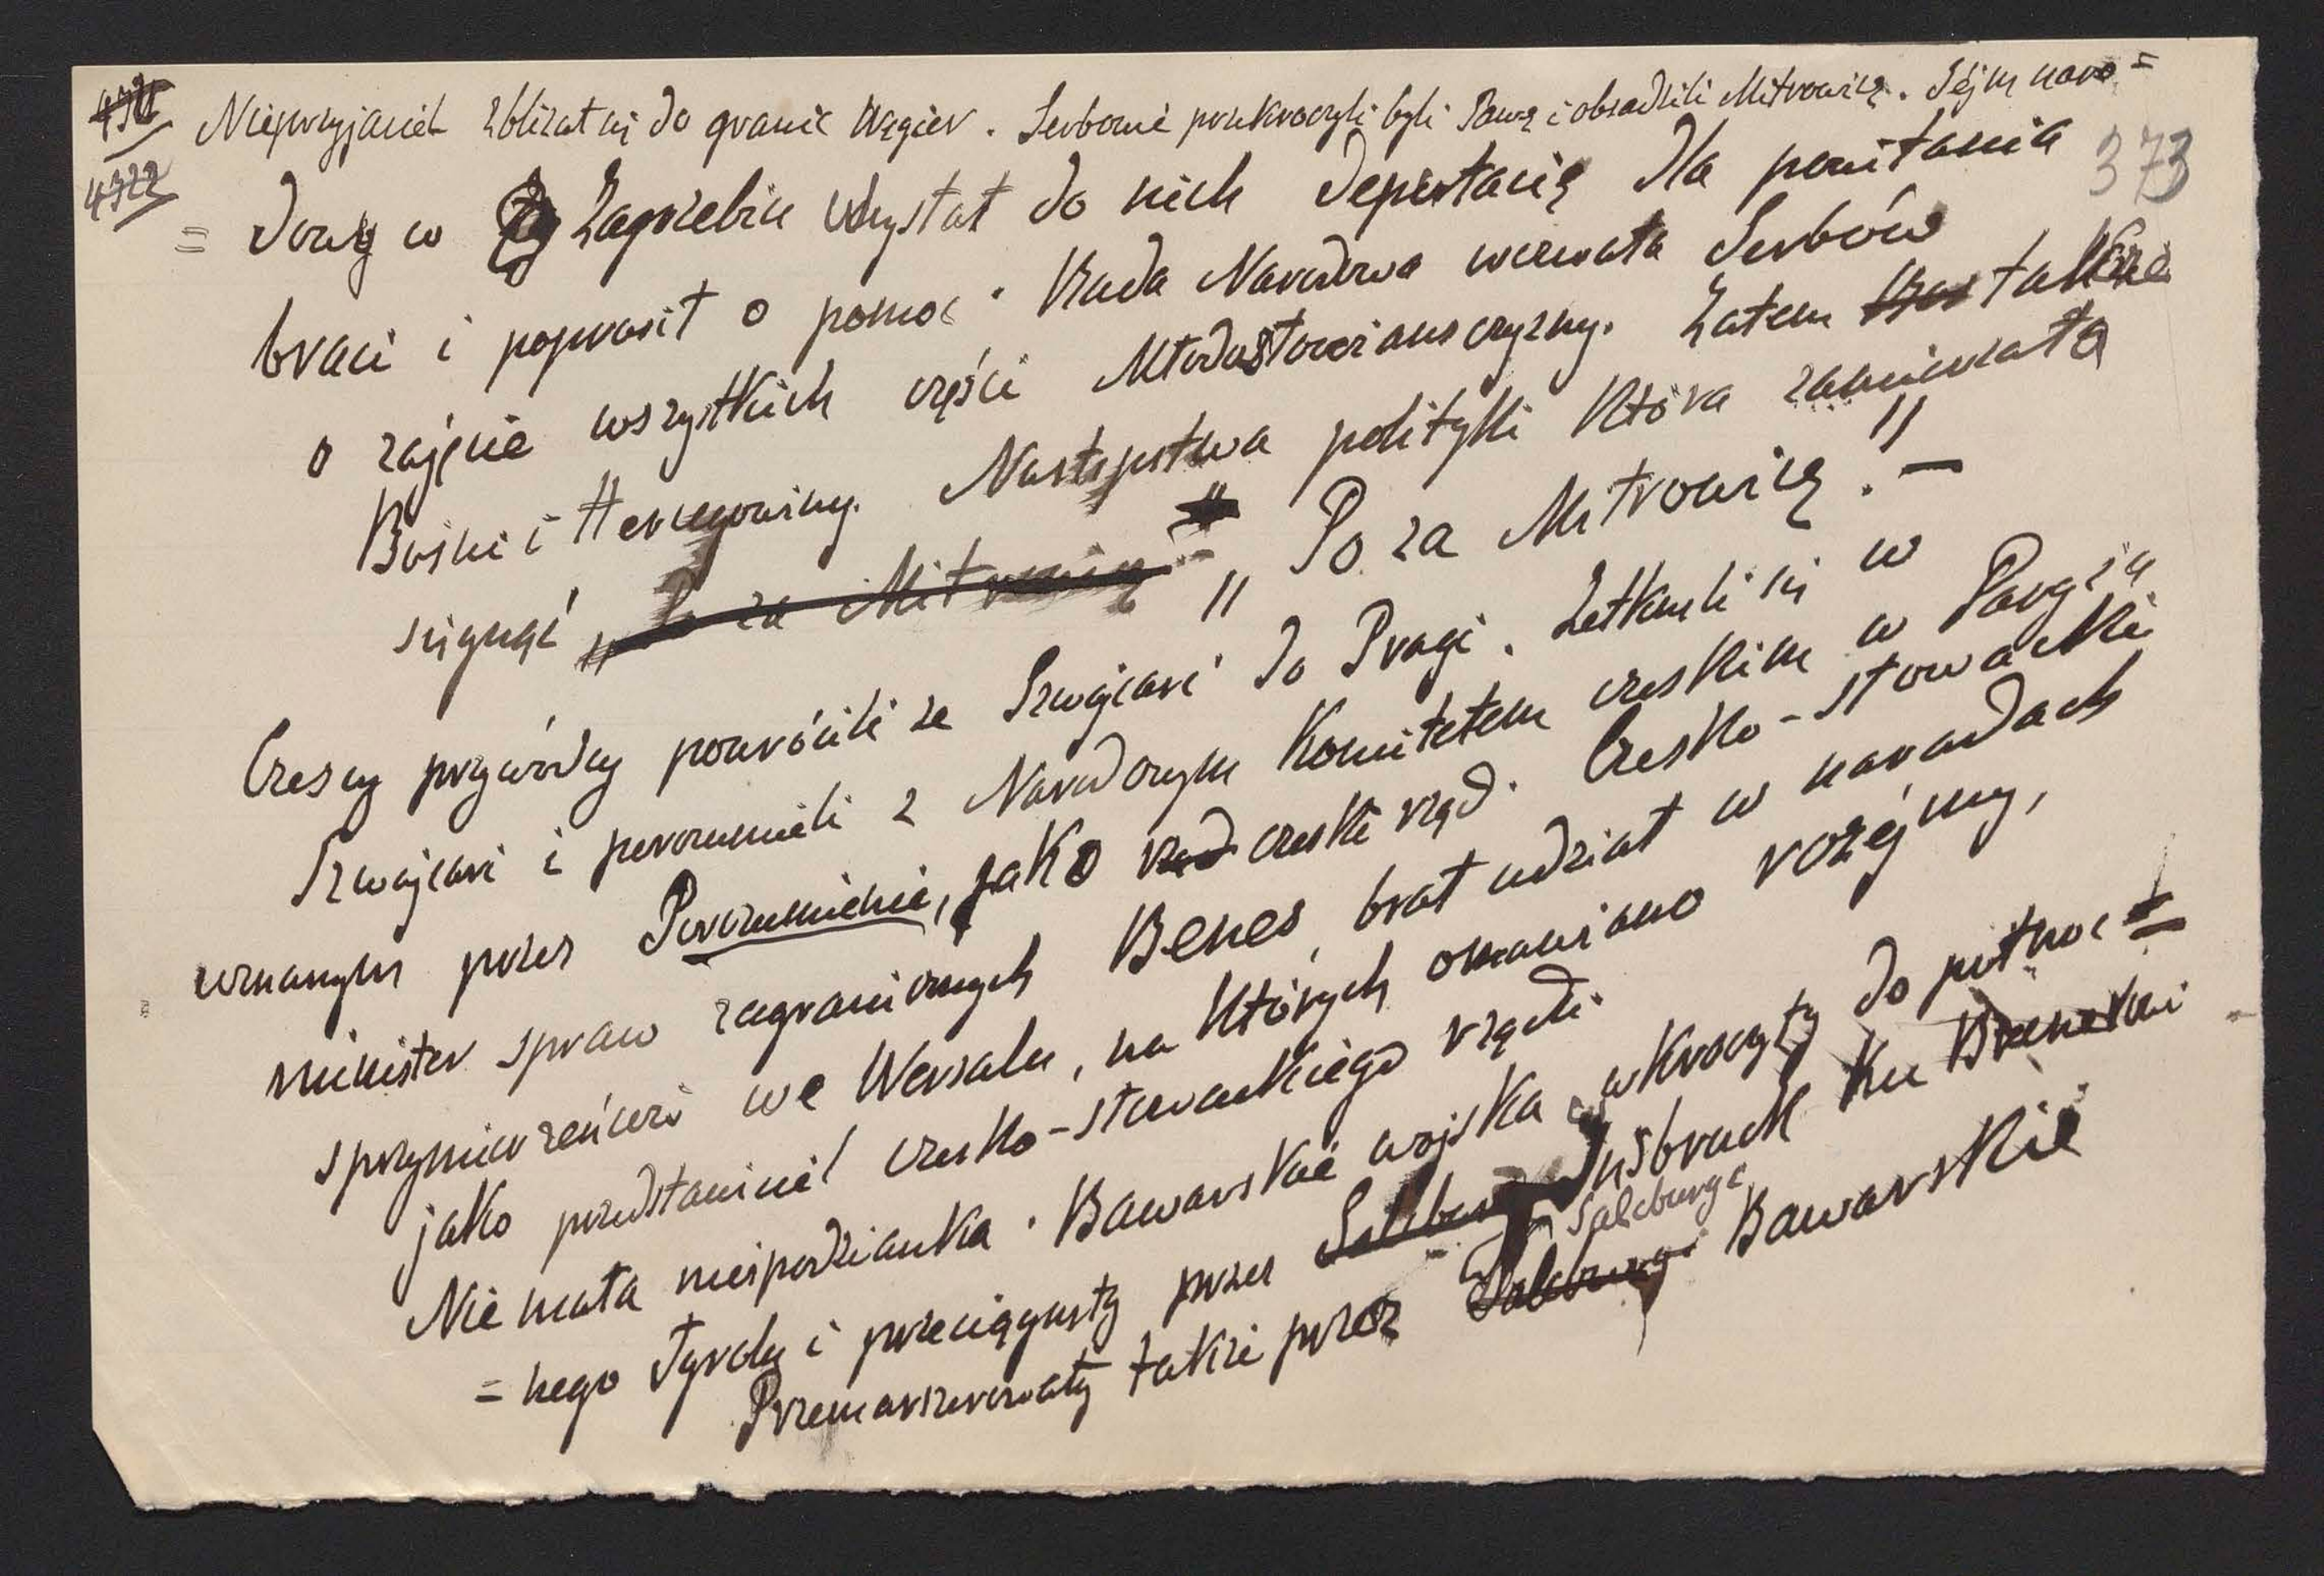 4321
Nieprzyjaciel zbliżał się do granic Węgier. Serbowie przekroczyli byli Sawę i obsadzili Mitrowicę. Sejm naro=
4322
373
= dowy w Zagrzebiu wysłał do nich deputacię dla powitania
braci i poprosił o pomoc. Rada Narodowa wezwała Serbów
o zajęcie wszystkich części Młodosłowiańsczyzny. Zatem także
Bośni i Hercegowiny. Następstwa polityki która zamierzała
sięgnąć „Po za Mitrowicę" „Po za Mitrowicę." —
Czescy przywódcy powrócili ze Szwajcarii do Pragi. Zetknęli się w
Szwajcarii i porozumieli z Narodowym Komitetem czeskim w Paryżu
uznanym przez Porozumienie, jako rząd czeski rząd. Czesko-słowacki
minister spraw zagranicznych Benes, brał udział w naradach
sprzymierzeńców we Wersalu, na których omawiano rozejmy,
jako przedstawiciel czesko-słowackiego rządu.
Nie mała niespodzianka. Bawarskie wojska wkroczyły do północ=
= nego Tyrolu i przeciągnęły przez Salzburg Insbruck ku Brenerowi
Salcburge
Przemaszerowały także przez Salcburge Bawarskie